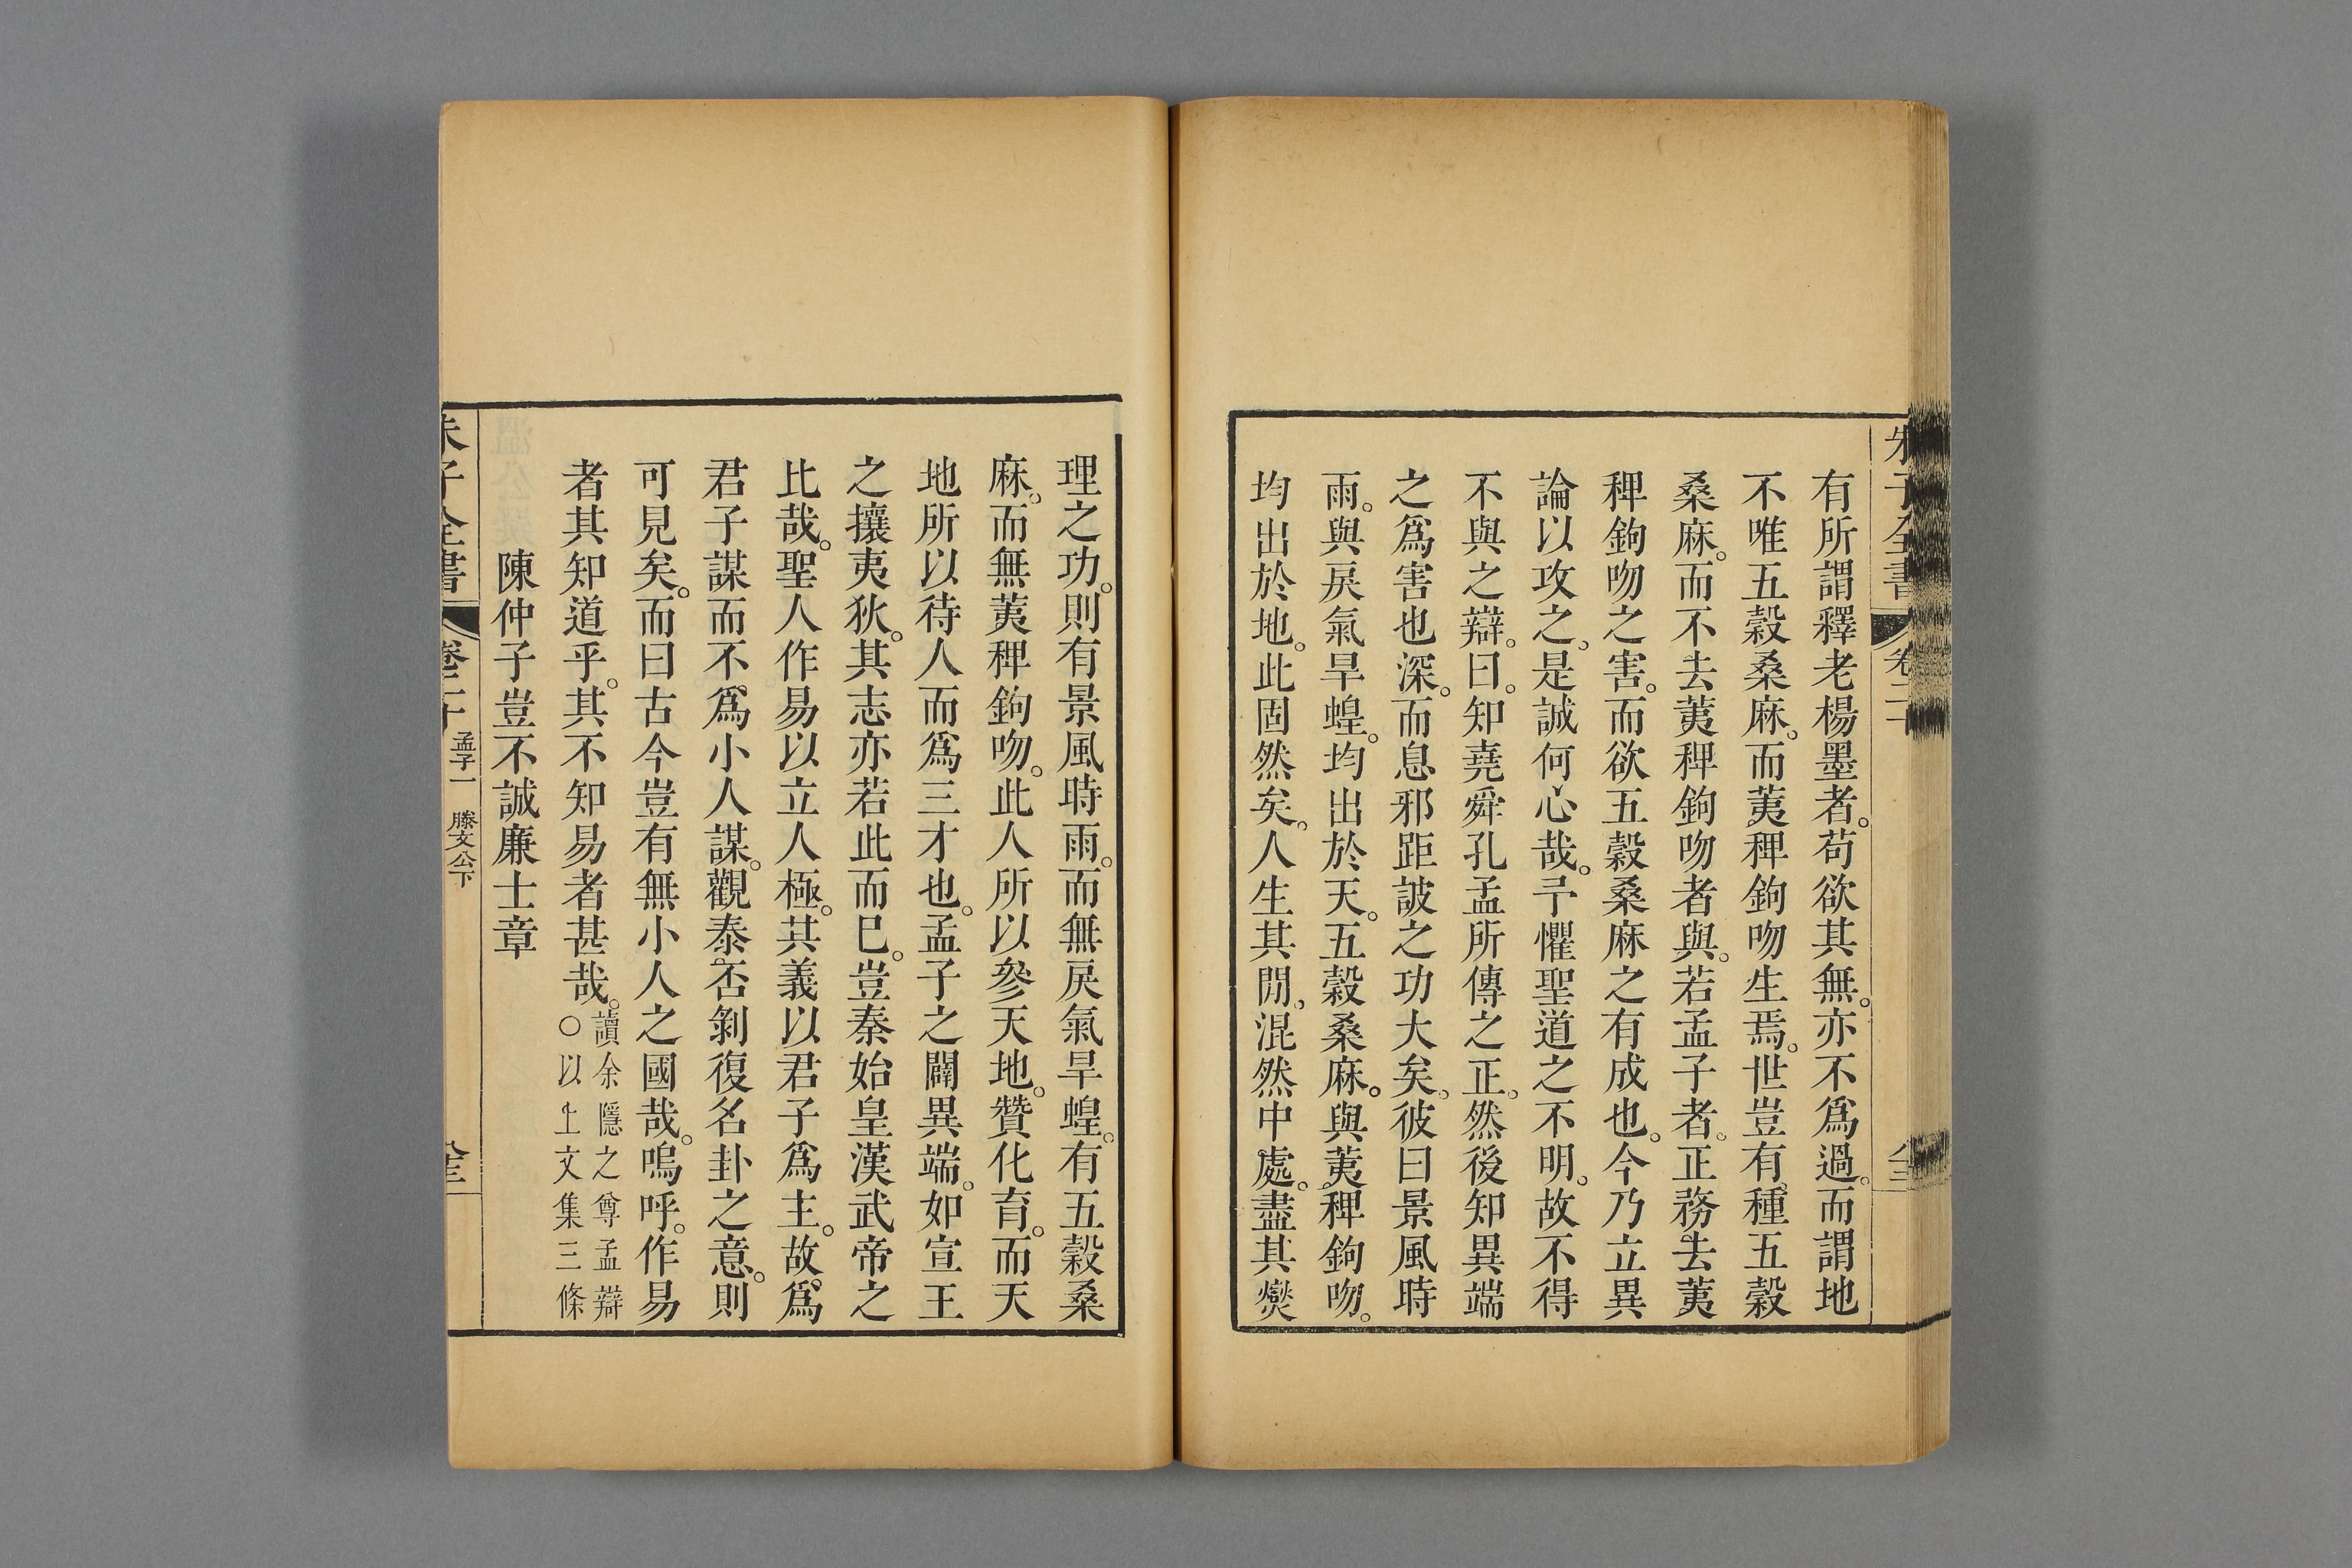 朱子全書 卷二十
有所謂釋老楊墨者。苟欲其無。亦不爲過。而謂地
不唯五穀桑麻。而荑稗鉤吻生焉。世豈有種五穀
桑麻。而不去荑稗鉤吻者與。若孟子者。正務去荑
稗鉤吻之害。而欲五穀桑麻之有成也。今乃立異
論以攻之、是誠何心哉。予懼聖道之不明。故不得
不與之辯。曰。知堯舜孔孟所傳之正。然後知異端
之爲害也深。而息邪距詖之功大矣。彼曰景風時
雨。與戾氣旱蝗。均出於天。五穀桑麻。與荑稗鉤吻。
均出於地。此固然矣。人生其閒、混然中處。盡其爕
理之功。則有景風時雨。而無戾氣旱蝗。有五穀桑
麻。而無荑稗鉤吻。此人所以參天地。贊化育。而天
地所以待人而爲三才也。孟子之闢異端。如宣王
之攘夷狄。其志亦若此而巳。豈秦始皇漢武帝之
比哉。聖人作易以立人極。其義以君子爲主。故爲
君子謀而不爲小人謀。觀泰否剝復名卦之意。則
可見矣。而曰古今豈有無小人之國哉。嗚呼。作易
者其知道乎。其不知易者甚哉。讀余隱之尊孟辯
○以上文集三條
陳仲子豈不誠廉士章
朱子全書 卷二十 孟子一 滕文公下